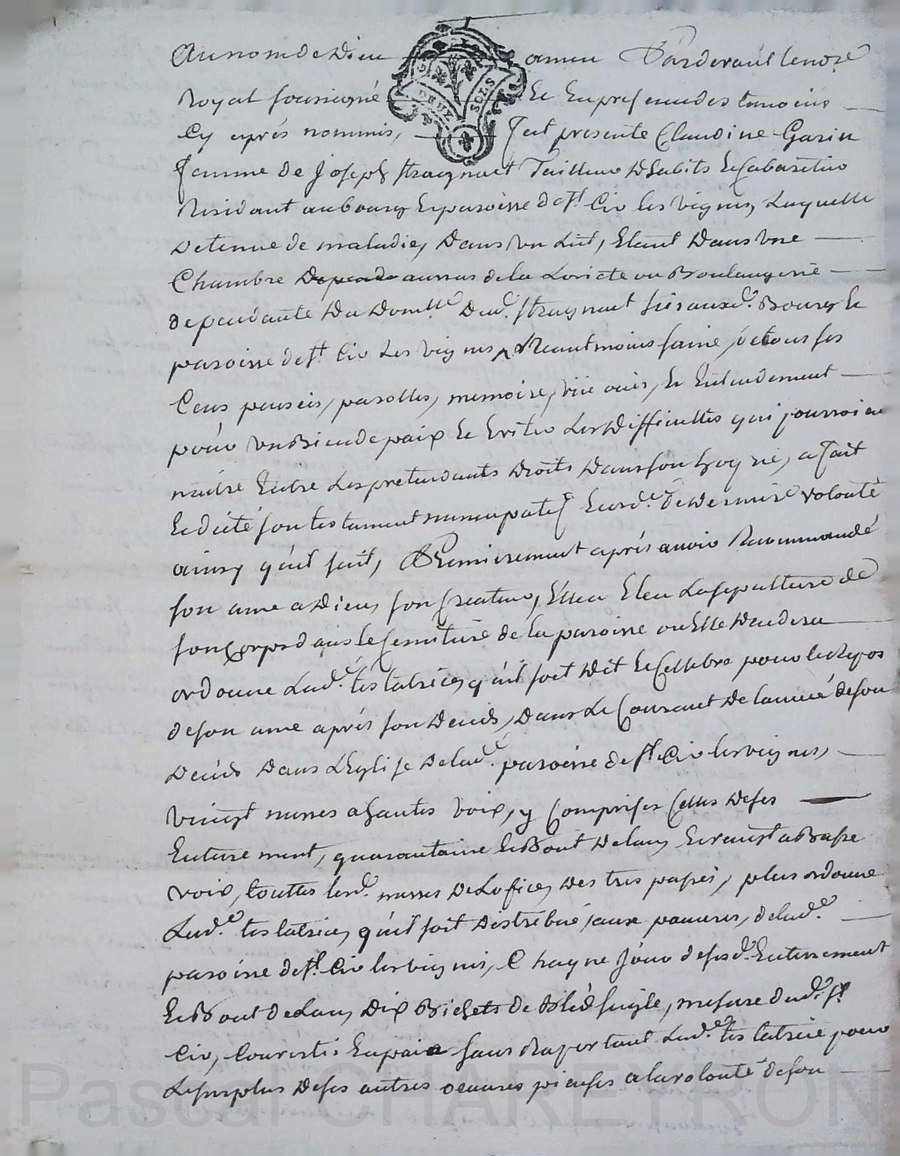 Au nom de Dieu amen Pardevant le no.re
Royal soussigné Et En presence des temoins
Cy aprés nommés, fut presente Claudine Garin
femme de Joseph Tailleur D'habits Et Cabaretier
Résidant au bourg Et paroisse de St. Cir les vignes, Laquelle
Detenue de maladie, Dans un Lit, Etant Dans une
Chambre Depende au mas de la ou Boulangerie
dependante Du Dom.lle Dud. sis aud. Bourg Et
paroisse de St. Cir Les vignes, Neantmoins saine, de tous ses
Cens pensées, parolles, memoire, ouie, Et Entendement
pour un Bien de paix Et Eviter Les Difficultés qui pourroient
naitre Entre Les prétendants Droits Dans son hoyrie, a fait
Et dicté son testament nuncupatif Et ord.ce De Derniere volonté
ainsy qu'il suit, Premierement aprés avoir Recommandé
son ame a Dieu, son Createur, Elle a Eleu La sepulture de
son Corps dans le Cemitiere de la paroisse ou Elle Decedera
ordonne Lad.e testatrice, qu'il soit Dit Et Cellebré pour le Repos
de son ame aprés son Decés, Dans Le Courant De l'année de son
Decés Dans L'Eglise De lad.e paroisse de St. Cir les vignes,
vingt messes a hautes voix, y Comprises Celles De ses
Enterrement, quarantaine Et Bout De l'an, Et vingt a Basse
voix, touttes lesd. messes De L'ofice, Des trepassés, plus ordonne
Lad.e testatrice, qu'il soit Distribué, aux pauvres, de lad.e
paroisse de St. Cir les vignes, Chaqne Jour de sesd. Enterrement
Et Bout de L'an, Dix Bichets de Bled seigle, mesure dud. St.
Cir, Convertis En pain sans Raportant Lad.e testatrice pour
Le surplus De ses autres oeuvres pieuses a la volonté de son
DEUX SOLS
Pascal CHAREYRON